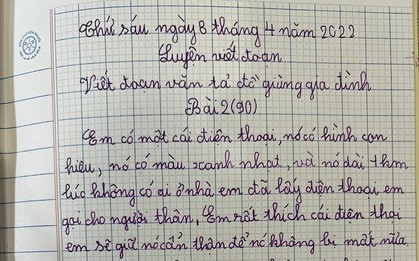 Thứ sáu ngày 8 tháng 4 năm 2022
Luyện viết đoạn
Viết đoạn văn tả đồ giùng gia đình
Bài 2(90)
Em có một cái điện thoại, nó có hình con
hiêu, nó có màu xanh nhạt, và nó dài 1 km
lúc không có ai ở nhà em đã lấy điện thoại em
gọi cho người thân, Em rất thích cái điên thoi
em sẽ giữ nó cẩn thân để nó không bi mất nữa.